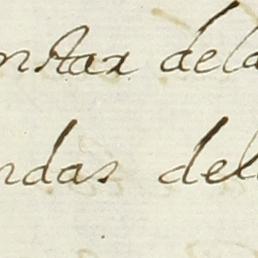 nstar dela
ndas del